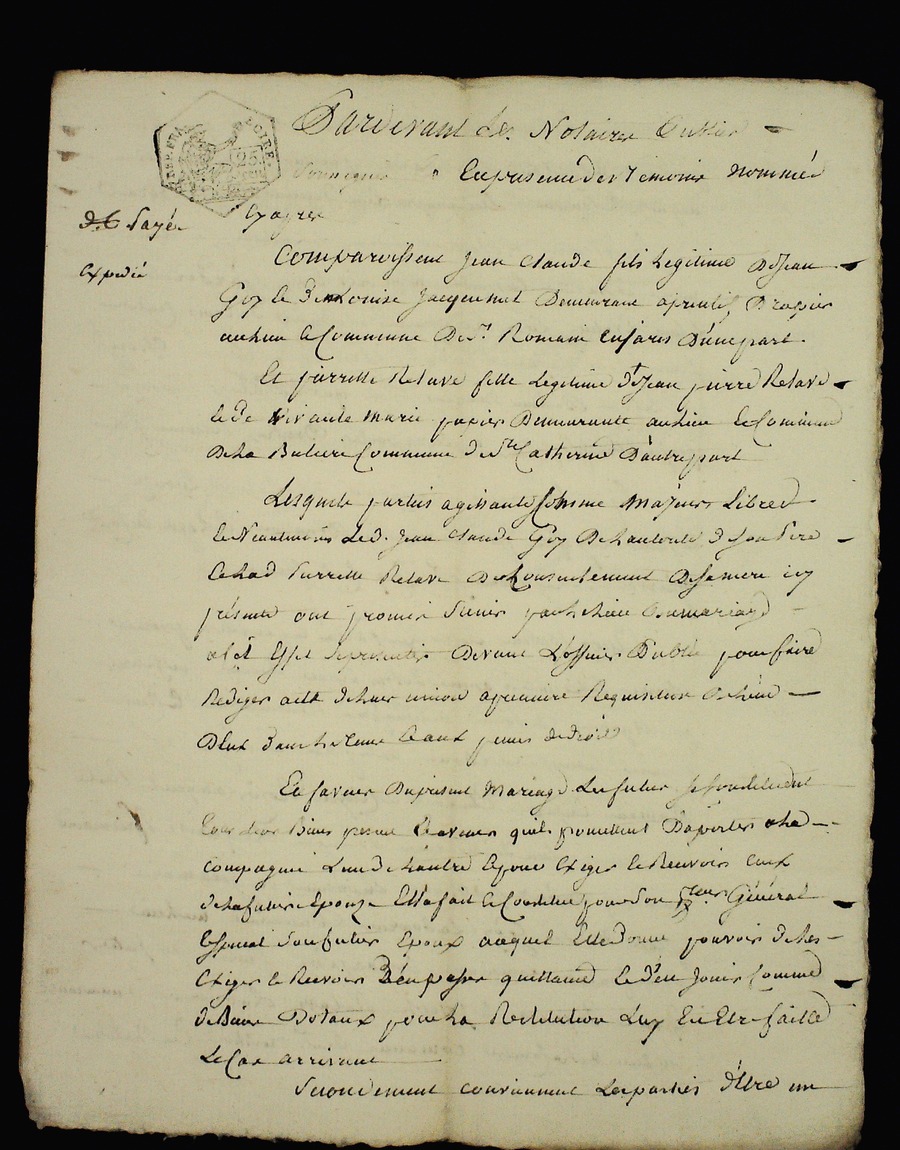 Pardevant Les Notaires Public
soussignés En presence des Temoins Nommés
25
d. 6 Payé
Expedié
Cy apres
Comparoissent Jean Claude fils Legitime De Jean
Goy & De Louise Jacquemet Demeurant aprentif Drapier
au lieu & Commune De St. Romain En Jarés D'une part.
Et pierrette Retave fille Legitime de Jean pierre Retave
& De vivante Marie Demeurante au lieu &
De La Commune de Ste Catherine D'autre part
Lesquels parties agissants Comme Majeurs Libres
& Neantmoins Led. Jean Claude Goy De Lautorité de Son Pere
& Lad. Pierrette Retave Du Consentement De sa mere icy
présente ont promis S'unir par le Lien du mariage
a cet Effet Se presenter Devant L'officier Public pour faire
Rediger acte de Leur union a premiere Requisition De L'un
D'Eux Dans le tems & aux peines de droit
En faveur Du present Mariage Les futurs se Constituent
Tous Leurs Biens presents & avenir quils promettent D'aporter a la
compagnie L'un de L'autre & pour Exiger & Recevoir Ceux
de La future Epouze Elle a fait & Constitué pour Son Général
& special Son futur Epoux auquel Elle Donne pouvoir de Les
Exiger & Recevoir D'en passer quittance & D'en Jouir Comme
de Biens Dotaux pour La Restitution Luy En Etre faitte
Le Cas arrivant
Secondement conviennent Les parties d'Etre en